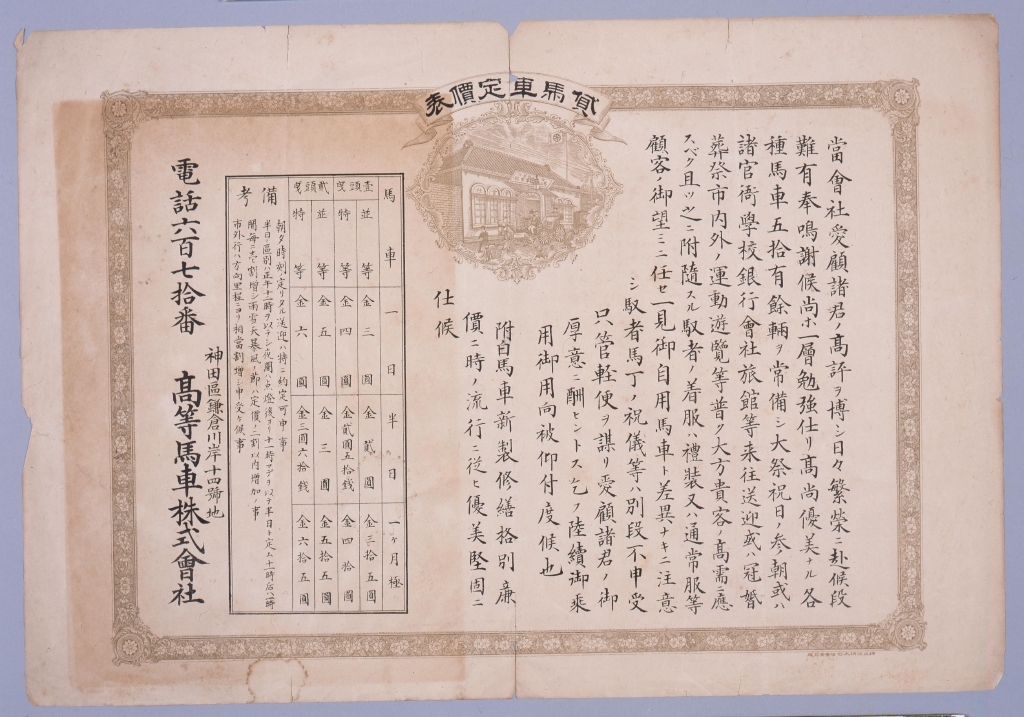 貸馬車定價表
當會社愛顧諸君ノ高評ヲ博シ日々繁榮ニ赴候段
難有奉鳴謝候尚ホ一層勉強仕リ高尚優美ナル各
種馬車五拾有餘輛ヲ常備シ大祭祝日ノ参朝或ハ
諸官衙學校銀行會社旅館等来往送迎或ハ冠婚
葬祭市内外ノ運動遊覧等普ク大方貴客ノ高需ニ應
スベク且ツ之ニ附隨スル馭者ノ着服ハ禮装又ハ通常服等
顧客ノ御望ミニ任セ一見御自用馬車ト差異ナキニ注意
シ馭者馬丁ノ祝儀等ハ別段不申受
只管軽便ヲ謀リ愛顧諸君ノ御
厚意ニ酬ヒントス乞フ陸續御乘
用御用向被仰付度候也
附白馬車新製修繕格別廉
價ニ時ノ流行ニ従ヒ優美堅固ニ
仕候
馬車 一日 半日 一ヶ月極
壹頭曳 並等 金三圓 金貳圓 金三拾五圓
特等 金四圓 金貳圓五拾銭 金四拾圓
貳頭曳 並等 金五圓 金三圓 金五拾五圓
特等 金六圓 金三圓六拾銭 金六拾五圓
備考
朝夕時刻ノ定リタル送迎ハ特ニ約定可申事
半日ノ區別ハ正午十二時ヲ以テシ夜間ハ点燈後ヨリ十一時マデヲ以テ半日ト定ム十一時后ハ一時
間毎ニ壱割増シ雨雪天暴風ノ節ハ定價ノ二割以内増加ノ事
市外行ハ方向里程ニヨリ相當割増シ申受ケ候事
神田區鎌倉川岸十四號地
高等馬車株式會社
電話六百七拾番